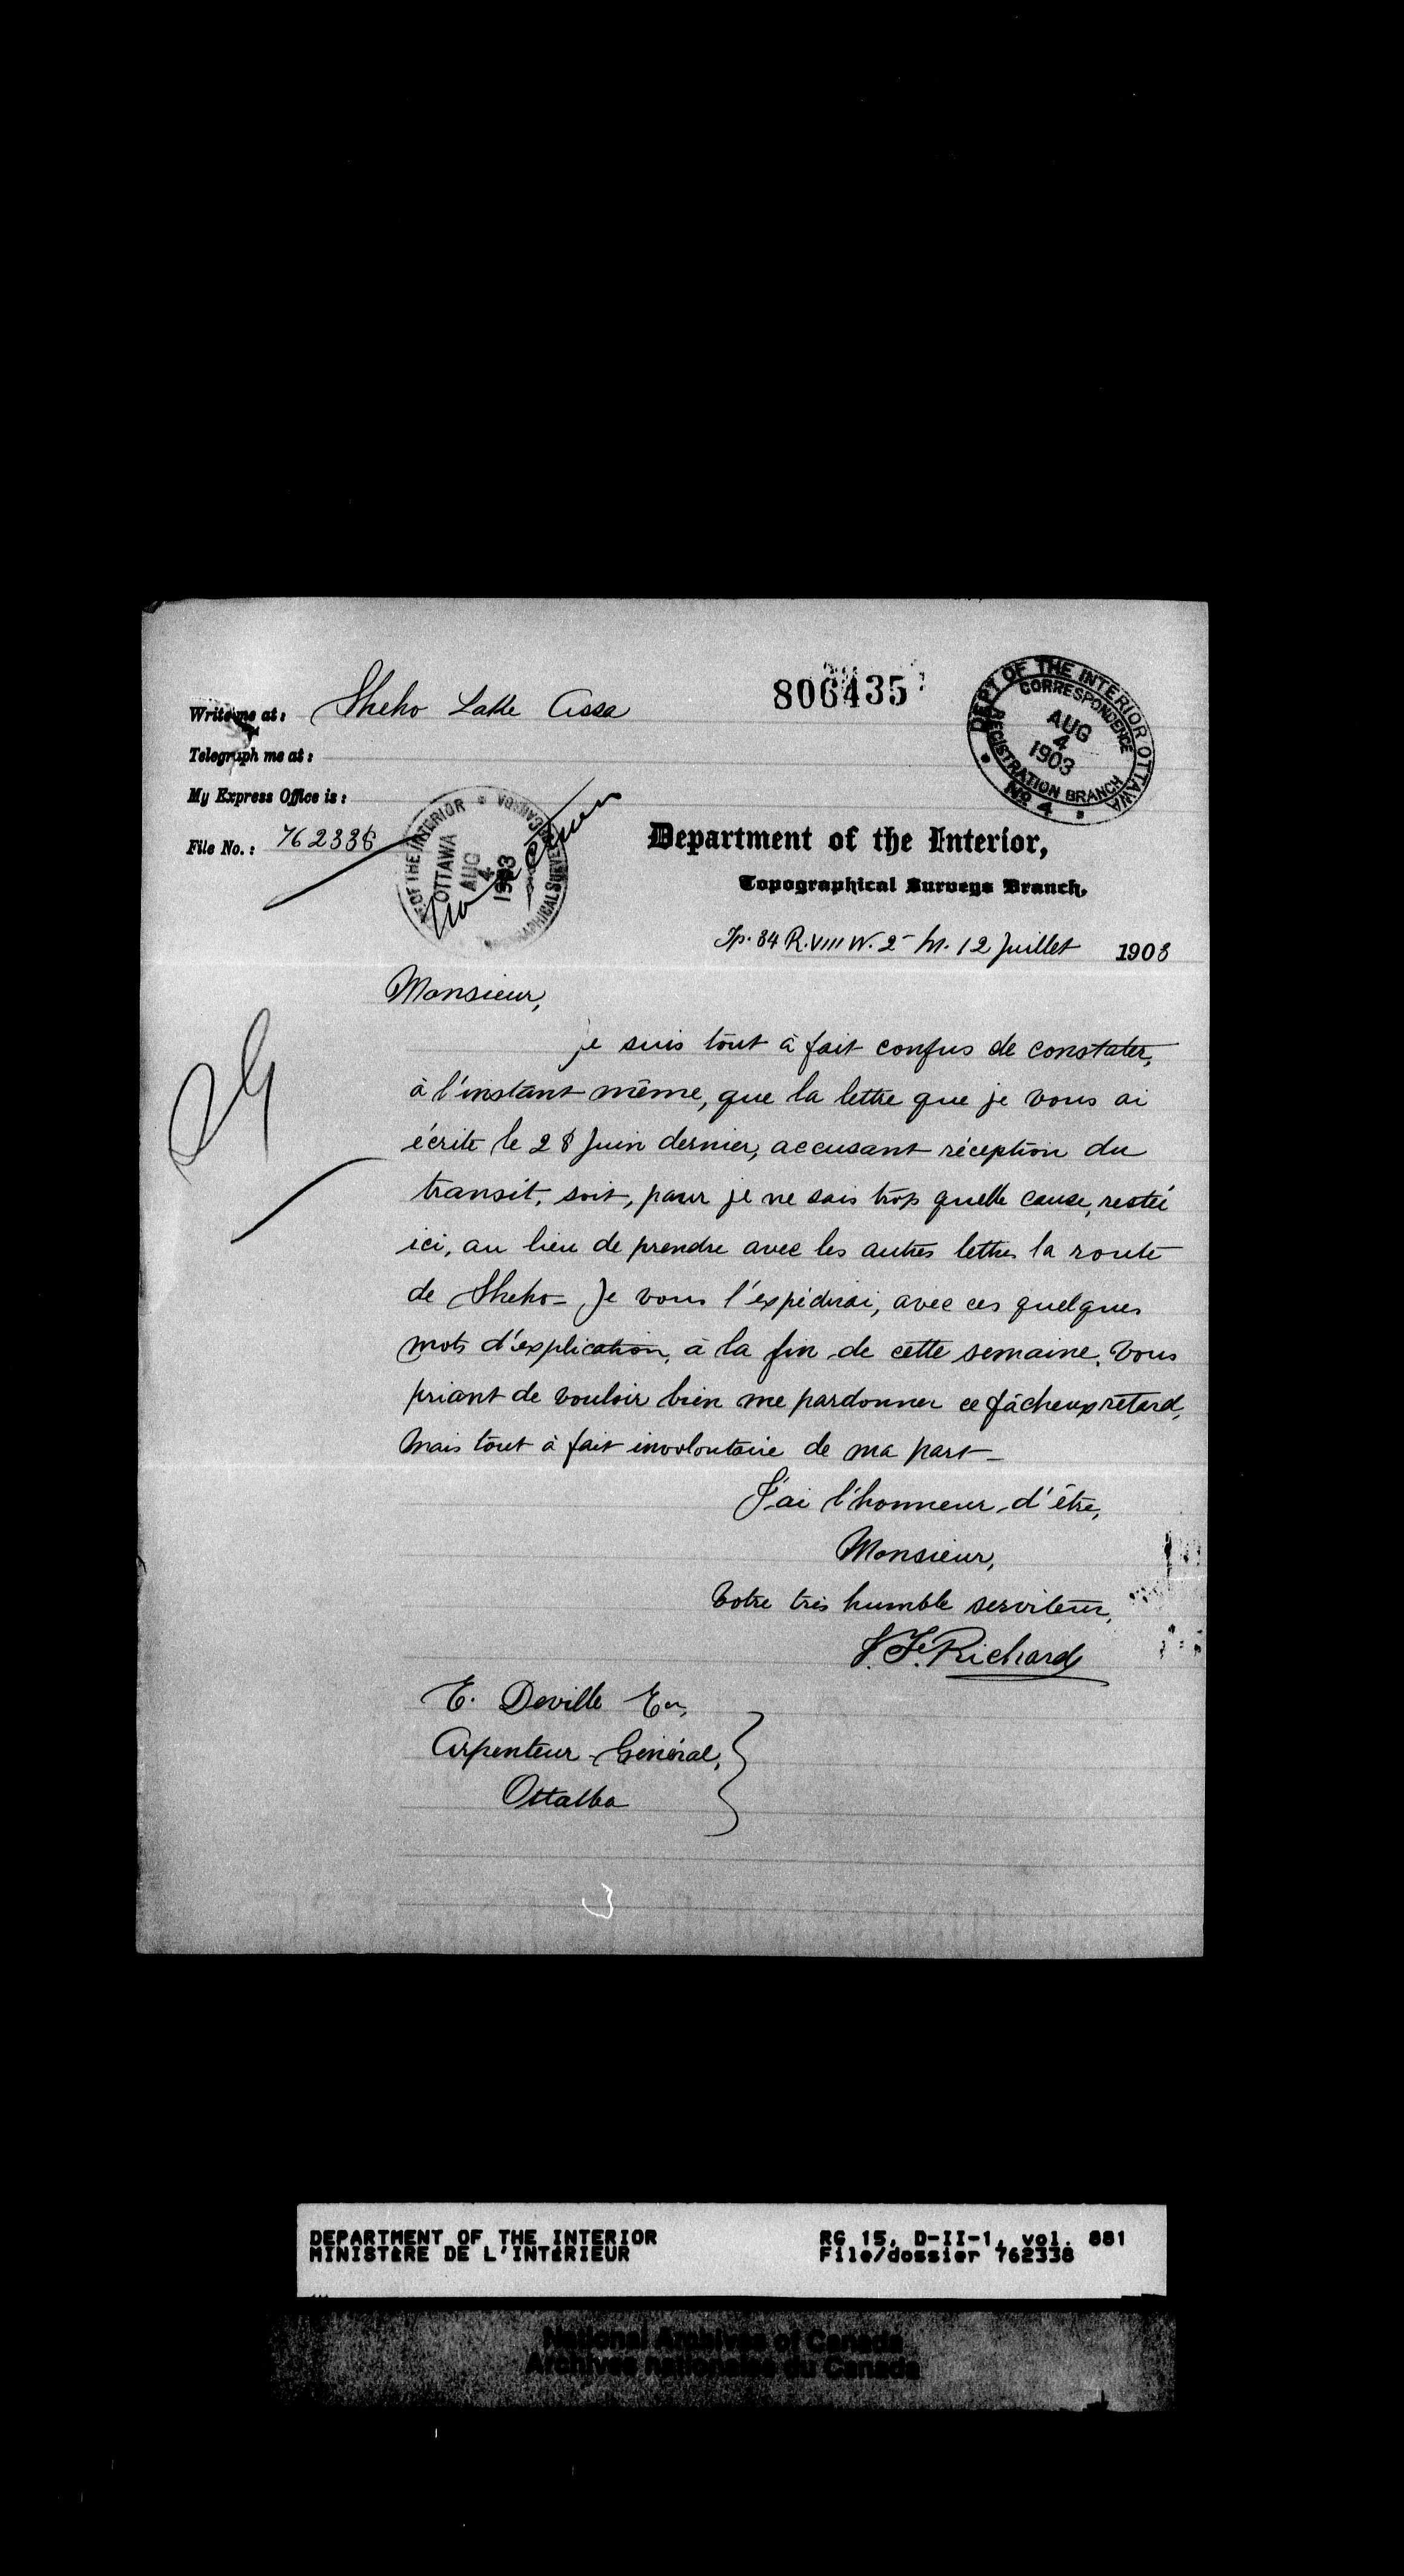 806435
DEPT OF THE INTERIOR OTTAWA
CORRESPONDENCE
AUG
4
1903
REGISTRATION BRANCH
No 4
Write me at: Sheho Lake Assa
Telegraph me at:
My Express Office is:
File No.: 762338
OF THE INTERIOR CANADA
OTTAWA
AUG
4
1903
TOPOGRAPHICAL SURVEYS
Department of the Interior,
Topographical Surveys Branch,
Tp. 34 R. VIII W. 2- M. 12 Juillet 1903
Monsieur,
je suis tout à fait confus de constater,
à l'instant même, que la lettre que je vous ai
écrite le 28 Juin dernier, accusant réception du
transit, soit, pour je ne sais trop quelle cause, restée
ici, au lieu de prendre avec les autres lettres la route
de Sheho- Je vous l'expédirai, avec ces quelques
mots d'explication, à la fin de cette semaine. Vous
priant de vouloir bien me pardonner ce fâcheux retard,
mais tout à fait involontaire de ma part-
J'ai l'honneur d'être,
Monsieur,
Votre très humble serviteur,
J. F. Richard
E. Deville Er,
Arpenteur-Général,
Ottawa
3
DEPARTMENT OF THE INTERIOR RG 15, D-II-1, vol. 881
MINISTÈRE DE L'INTÉRIEUR File/dossier 762338
National Archives of Canada
Archives nationales du Canada